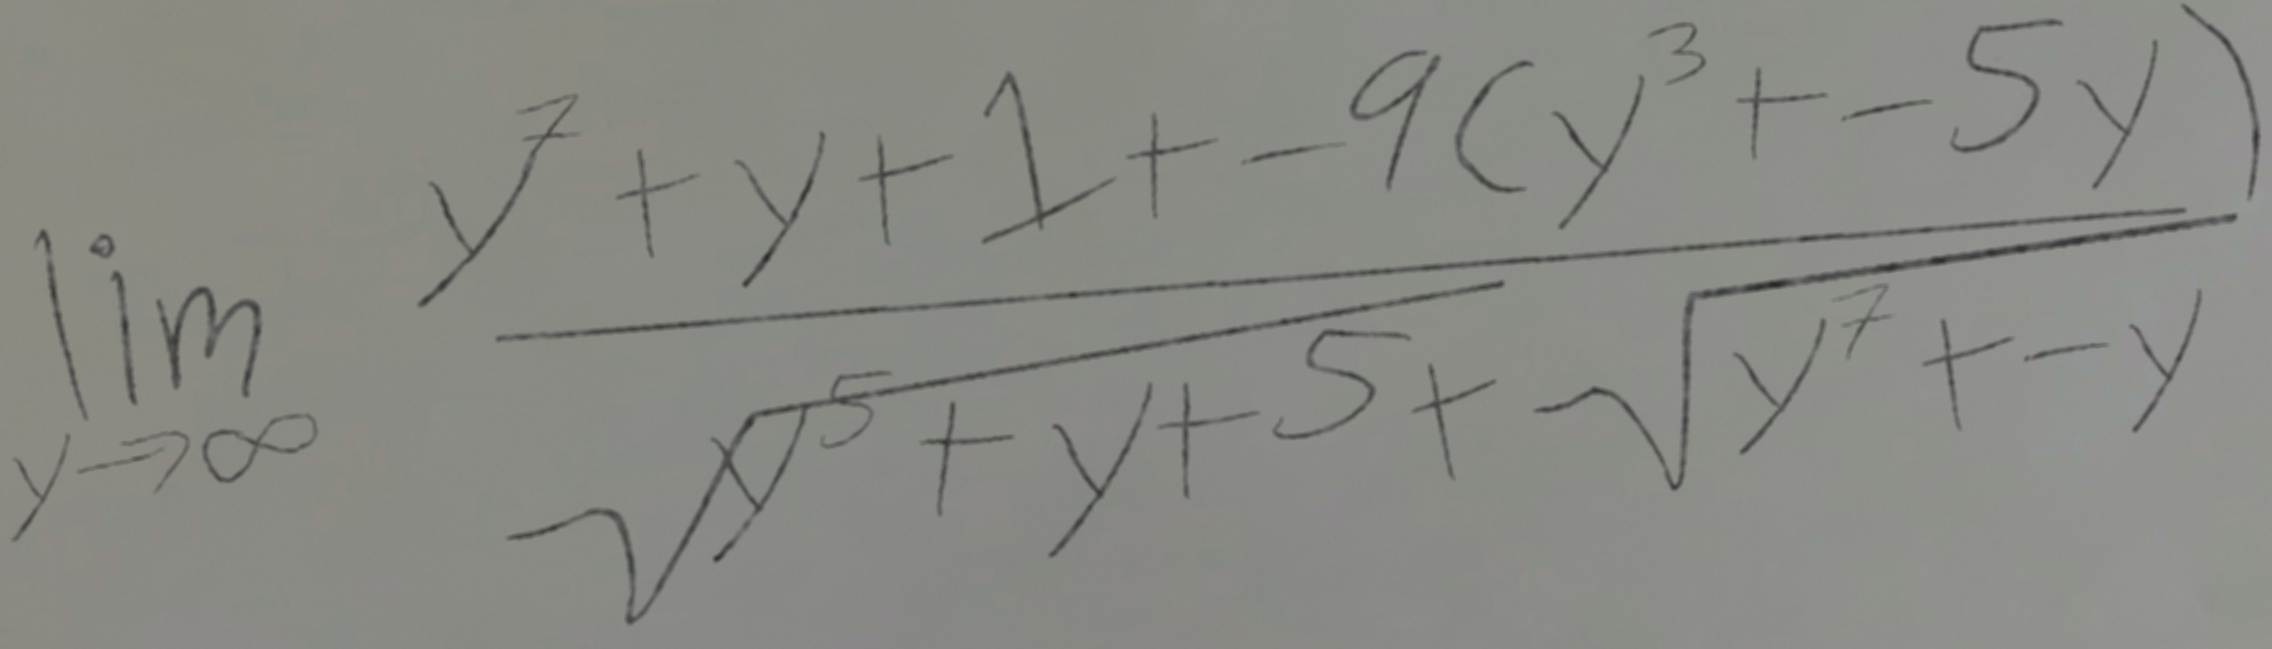 \lim_{y \to \infty} \frac{y^7 + y + 1 + -9(y^3 + -5y)}{\sqrt{y^5 + y + 5} + \sqrt{y^7 + -y}}